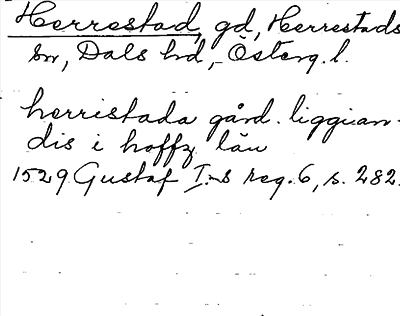 Herrestad, gd, Herrestads
sn, Dals hd, Österg. l.
herristada gård. liggian-
dis i hoffz län
1529 Gustaf I:s reg. 6, s. 282.